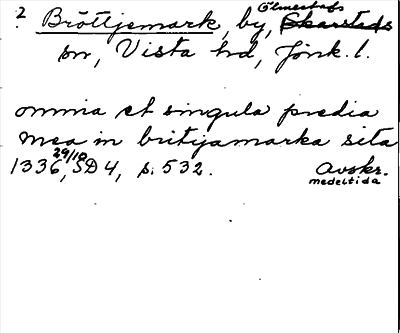 2 Ölmestads
. Bröttjemark, by, Skarstads
sn, Vista hd, Jönk. l.
omnia et singula predia
mea in britjamarka sita
29/10
1336, SD 4, s. 532. Avskr.
medeltida